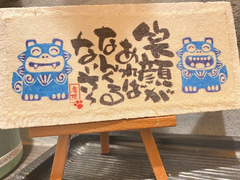 笑顔が
あれば
なんくる
ないさぁ